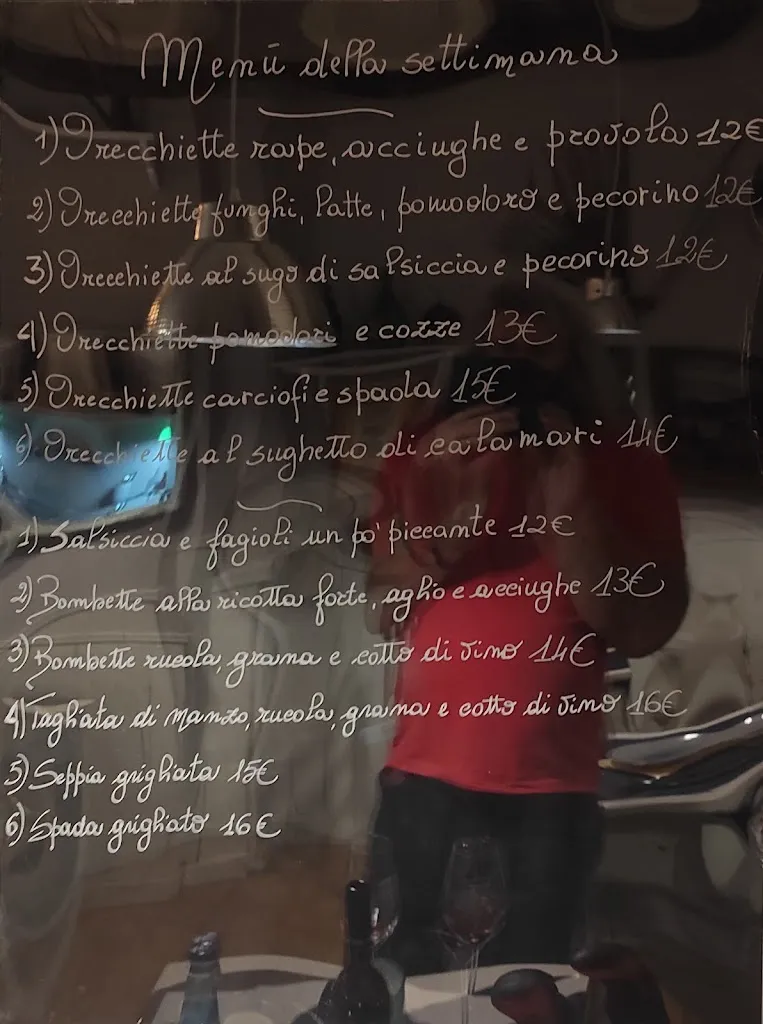 Menù della settimana
1) Orecchiette rape, acciughe e provola 12€
2) Orecchiette funghi, latte, pomodoro e pecorino 12€
3) Orecchiette al sugo di salsiccia e pecorino 12€
4) Orecchiette pomodori e cozze 13€
5) Orecchiette carciofi e spada 15€
6) Orecchiette al sughetto di calamari 14€
1) Salsiccia e fagioli un po' piccante 12€
2) Bombette alla ricotta forte, aglio e acciughe 13€
3) Bombette rucola, grana e cotto di vino 14€
4) Tagliata di manzo, rucola, grana e cotto di vino 16€
5) Seppia grigliata 15€
6) Spada grigliato 16€